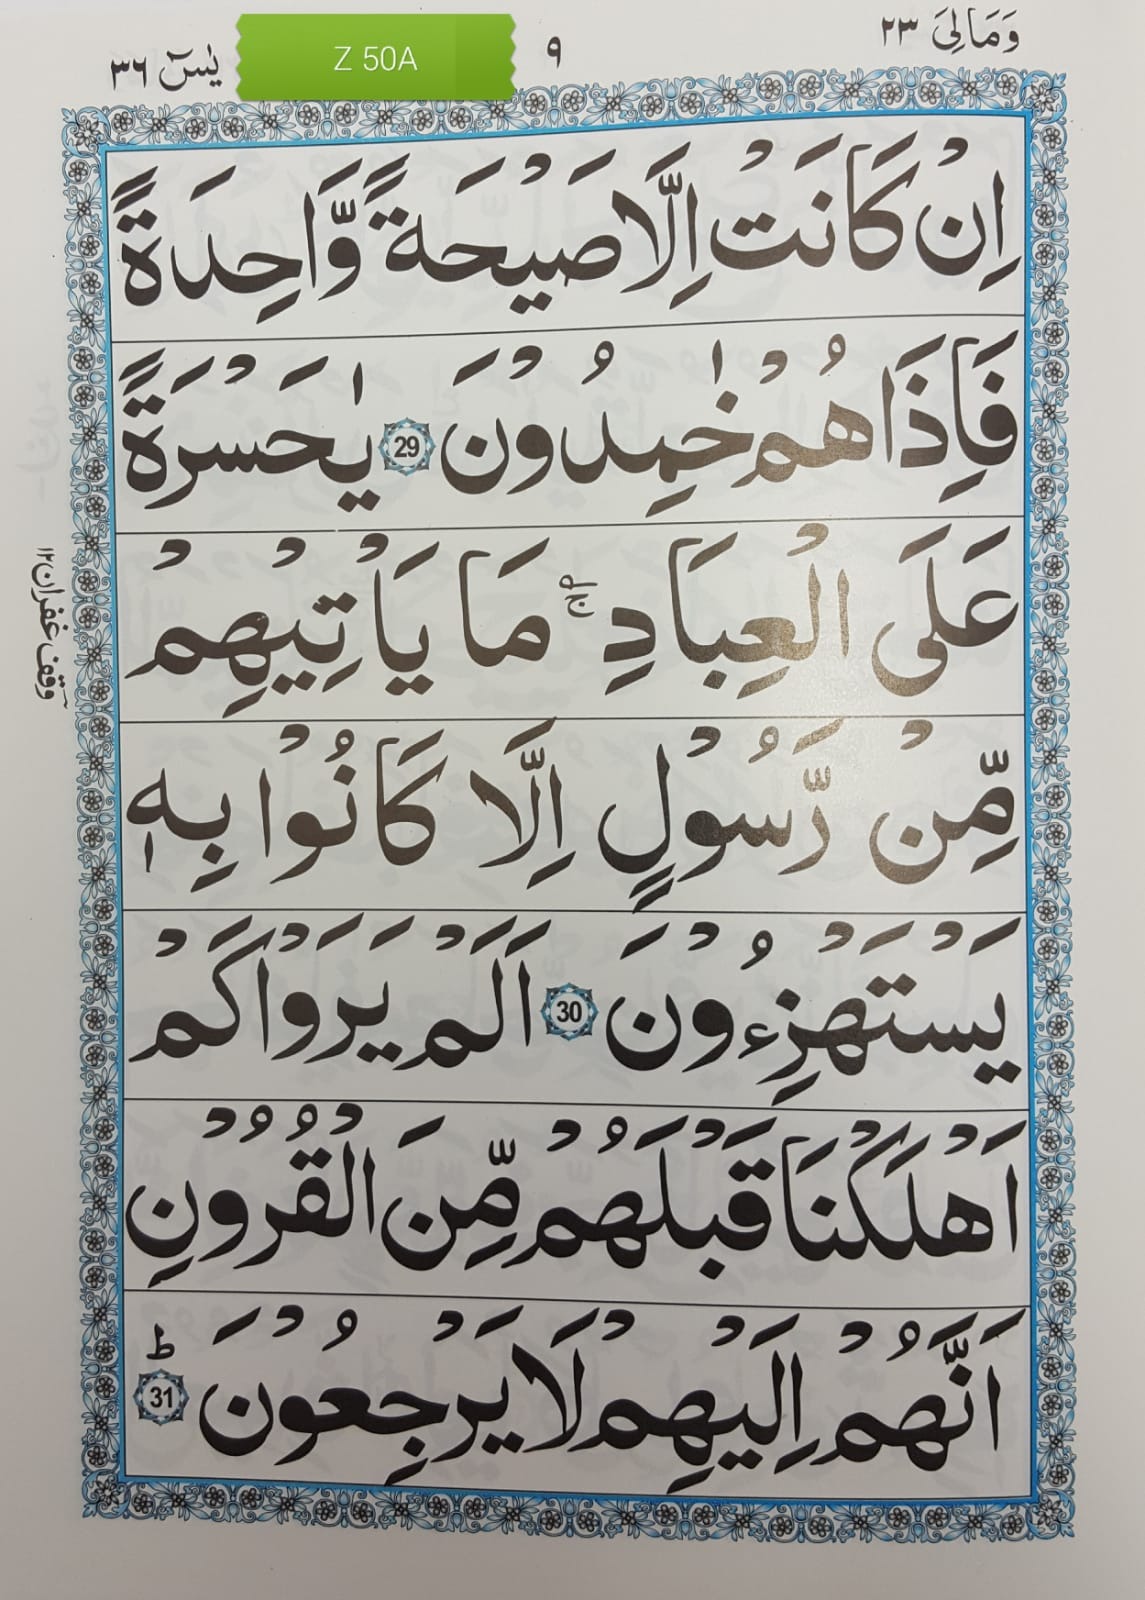 وَمَالِیَ ٢٣
٩
Z 50A
یٰسٓ ٣٦
اِنْ كَانَتْ اِلَّا صَيْحَةً وَّاحِدَةً
فَاِذَا هُمْ خٰمِدُوْنَ 29 يٰحَسْرَةً
عَلَى الْعِبَادِ ۚ مَا يَاْتِيْهِمْ
مِّنْ رَّسُوْلٍ اِلَّا كَانُوْا بِهٖ
يَسْتَهْزِءُوْنَ 30 اَلَمْ يَرَوْا كَمْ
اَهْلَكْنَا قَبْلَهُمْ مِّنَ الْقُرُوْنِ
اَنَّهُمْ اِلَيْهِمْ لَا يَرْجِعُوْنَ ؕ 31
وقف غفران ١٢